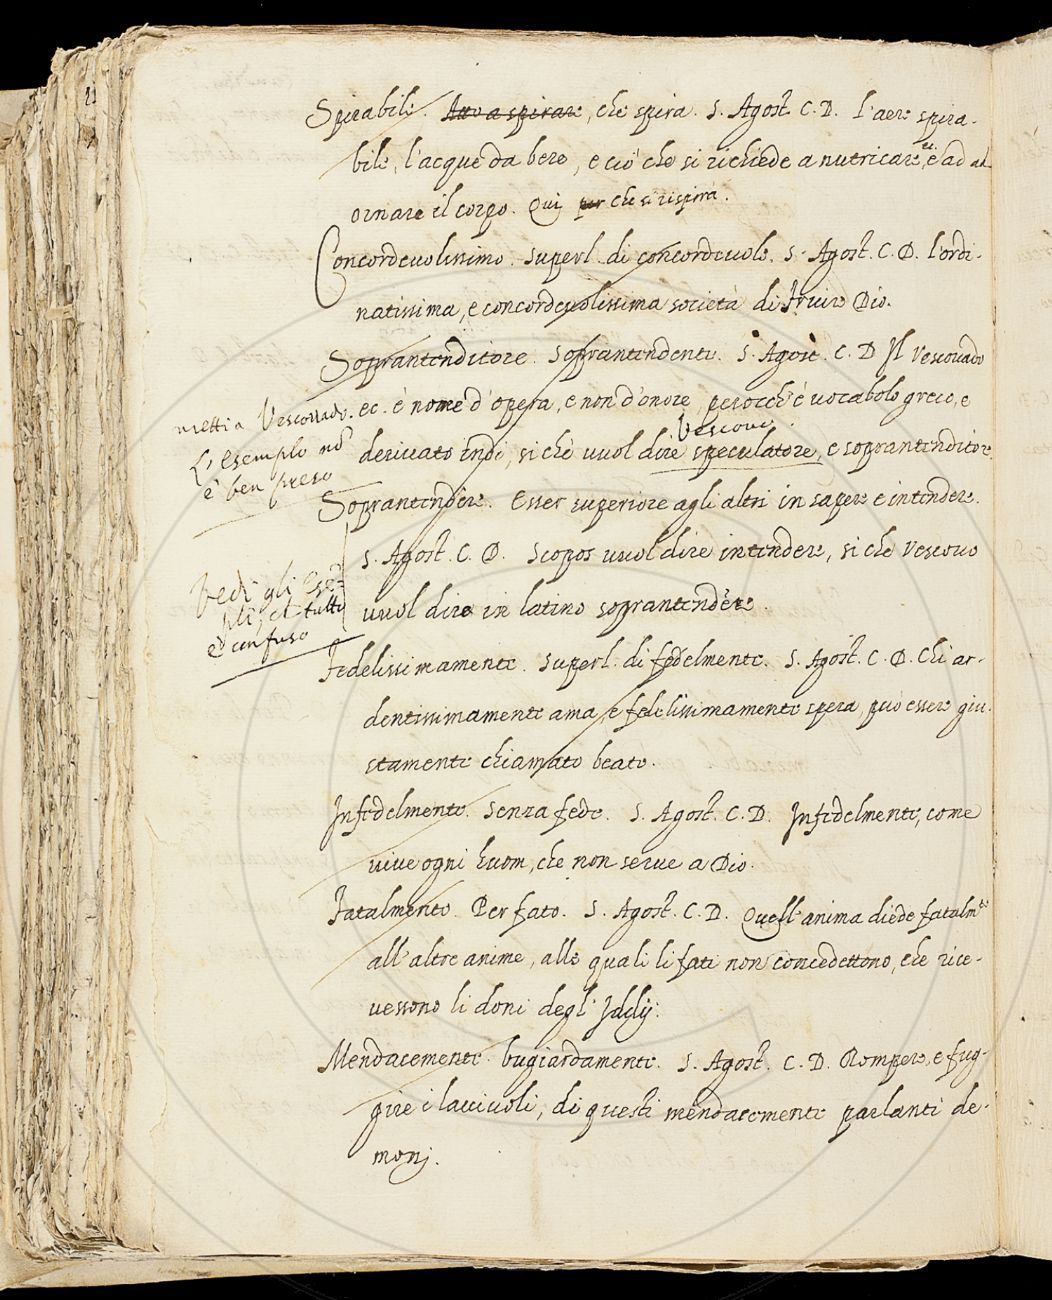 Spirabile. Atto a spirare, che spira. S. Agost. C. D. l'aere spira-
bile, l'acque da bere, e ciò che si richiede a nutricare, et ad ad
ornare il corpo. Qui per che si rispira.
Concordevolissimo. Superl. di concordevole. S. Agost. C. D. l'ordi-
natissima, e concordevolissima società di fruire Dio.
Soprantenditore. Soprantendente. S. Agost. C. D. Il Vescovado
ec. è nome d'opera, e non d'onore, perocch'è vocabolo greco, e
derivato indi, si chè vuol dire Vescovo speculatore, e soprantenditore
metti a Vescovado.
L'esemplo nō
è ben preso
Soprantendere. Esser superiore agli altri in sapere e intendere.
S. Agost. C. D. Scopos vuol dire intendere, si che Vescovo
vuol dire in latino soprantendere.
Vedi gli ese-
pli, et tutto
è confuso
Fedelissimamente. Superl. di fedelmente. S. Agost. C. D. Chi ar-
dentissimamente ama, e fedelissimamente spera, può essere giu-
stamente chiamato beato.
Infedelmente. Senza fede. S. Agost. C. D. Infedelmente, come
vive ogni huom, che non serve a Dio.
Fatalmente. Per fato. S. Agost. C. D. Quell'anima diede fatalmte
all'altre anime, alle quali li fati non concedettono, che rice-
vessono li doni degl'Idoly.
Mendacemente. bugiardamente. S. Agost. C. D. Rompere, e fug-
gire i lacciuoli, di questi mendacemente parlanti de-
monj.